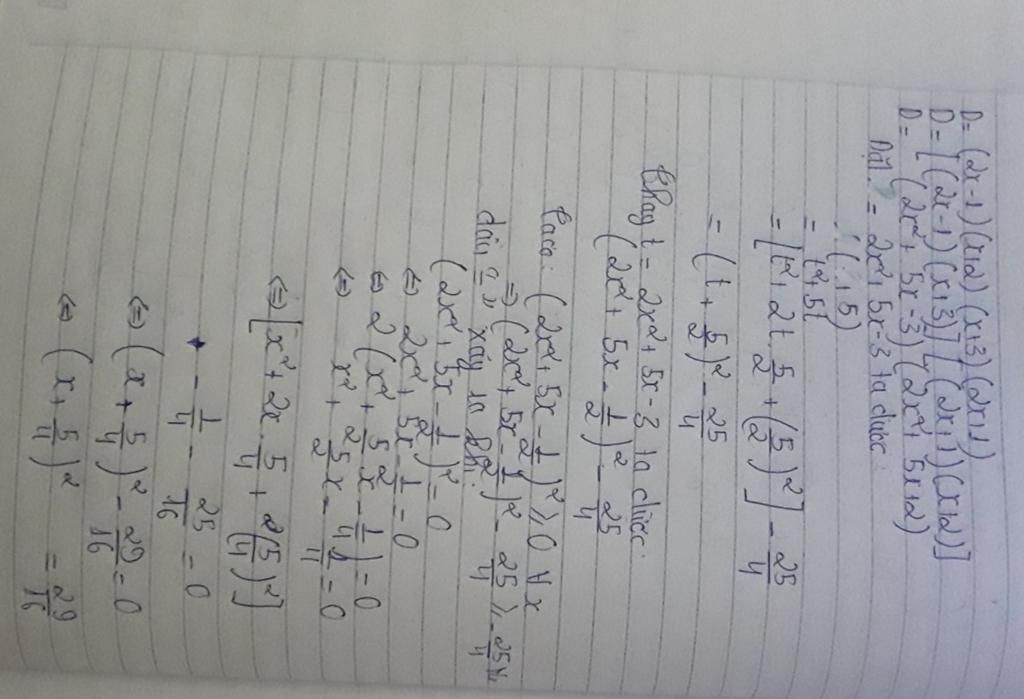 D = (2x-1)(x+2)(x+3)(2x+1)
D = [(2x-1)(x+3)][(2x+1)(x+2)]
D = (2x² + 5x-3)(2x² + 5x+2)
Đặt = 2x²+5x-3 ta được:
( +5)
= t²+5t
= [t²+2t 5/2 + (5/2)²] - 25/4
= (t + 5/2)² - 25/4
Thay t = 2x²+5x-3 ta được:
(2x² + 5x - 1/2)² - 25/4
Ta có: (2x²+5x - 1/2)² ≥ 0 ∀x
⇒ (2x²+5x - 1/2)² - 25/4 ≥ -25/4 ∀x
dấu "=" xảy ra khi:
(2x²+5x - 1/2)² = 0
⇔ 2x²+5x - 1/2 = 0
⇔ 2(x² + 5/2x - 1/4) = 0
⇔ x² + 5/2x - 1/4 = 0
⇔ [x²+2x 5/4 + (5/4)²]
- 1/4 - 25/16 = 0
⇔ (x + 5/4)² - 29/16 = 0
⇔ (x + 5/4)² = 29/16